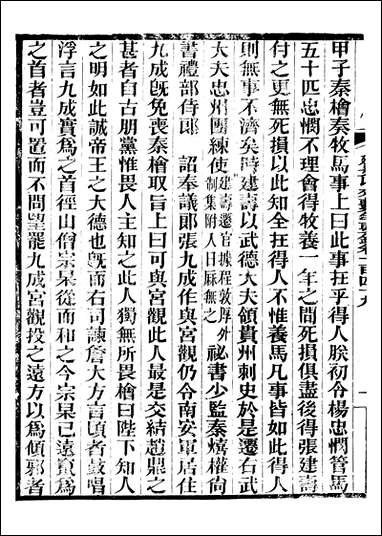 甲子秦檜奏牧馬事上曰此事在乎得人朕初令楊忠憫管馬
五十匹忠憫不理會得牧養一年之間死損俱盡後得張建壽
付之更無死損以此知全在得人不惟養馬凡事皆如此得人
則無事不濟矣時建壽以武德大夫領貴州刺史於是遷右武
大夫忠州團練使建壽遷官據程敦厚外制集附入日厤無之祕書少監秦熺權尚
書禮部侍郎 詔奉議郎張九成作與宮觀仍令南安軍居住
九成旣免喪秦檜取旨上曰可與宮觀此人最是交結趙鼎之
甚者自古朋黨惟畏人主知之此人獨無所畏檜曰陛下知人
之明如此誠帝王之大德也旣而右司諫詹大方言頃者鼓唱
浮言九成實爲之首徑山僧宗杲從而和之今宗杲已遠竄爲
之首者豈可置而不問望罷九成宮觀投之遠方以爲傾邪者